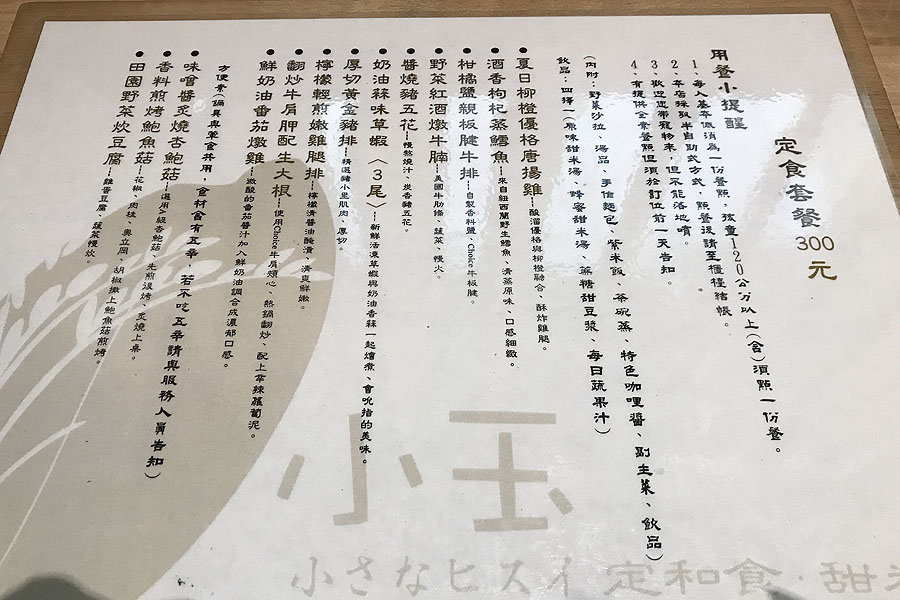 定食套餐 300 元
用餐小提醒
1、每人基本低消為一份餐點，孩童120公分以上(含)須點一份餐。
2、本店採取半自助式方式，點餐後請至櫃檯結帳。
3、歡迎您帶寵物來，但不能落地唷。
4、有提供全素餐點但須於訂位前一天告知。
(內附：野菜沙拉、湯品、手作麵包、紫米飯、茶碗蒸、特色咖哩醬、副主菜、飲品)
飲品：四擇一(原味甜米湯、蜂蜜甜米湯、蔗糖甜豆漿、每日蔬果汁)
●夏日柳橙優格唐揚雞---酸溜優格與柳橙融合、酥炸雞腿。
●酒香枸杞蒸鱈魚---來自紐西蘭野生鱈魚、清蒸原味、口感細緻。
●柑橘鹽親板腱牛排---自製香料鹽、Choice牛板腱。
●野菜紅酒燉牛腩---美國牛肋條、蔬菜、慢火。
●醬燒豬五花---慢熬燒汁、炭香豬五花。
●奶油蒜味草蝦〈3尾〉---新鮮活凍草蝦與奶油香蒜一起燴煮、會吮指的美味。
●厚切黃金豬排---精選豬小里肌肉、厚切。
●檸檬輕煎嫩雞腿排---檸檬清醬油醃漬、清爽鮮嫩。
●翻炒牛肩胛配生大根---使用Choice牛肩頰心、熱鍋翻炒、配上辛辣蘿蔔泥。
●鮮奶油番茄燉雞---微酸的番茄醬汁加入鮮奶油調合成濃郁口感。
方便素(鍋具與葷食共用，食材含有五辛，若不吃五辛請與服務人員告知)
●味噌醬炙燒杏鮑菇---選用A級杏鮑菇、先煎後烤、炙燒上桌。
●香料煎烤鮑魚菇---花椒、肉桂、奧立岡、胡椒撒上鮑魚菇煎烤。
●田園野菜炊豆腐---雞蛋豆腐、蔬菜慢炊。
小玉
小さなヒスイ 定和食·甜